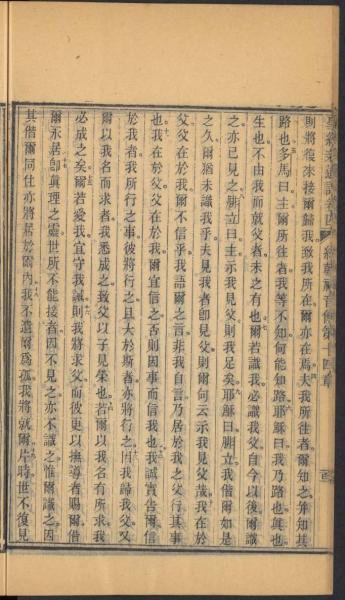 則將復來接爾歸我致我所在爾亦在焉夫我所往者爾知之并知其
路也多馬曰主爾所往者我等不知何能知路耶穌曰我乃路也真也
生也不由我而就父者未之有也爾若識我必識我父自今以後爾識
之亦已見之腓立曰主示我見父我足矣耶穌曰腓立我偕爾如是
之久爾猶未識我乎夫見我者即見父則爾何云示我見父哉我在於
父父在於我爾不信乎我語爾之言非我自言乃居於我之父行其事
也我在於父父在於我爾宜信之否則因事而信我也我誠實告爾信
於我者我所行之事彼將行之且大於斯者亦將行之因我歸我父又
爾以我名而求者我悉成之致父以子見榮也若爾以我名有所求我
必成之矣爾若愛我宜守我誡則我將求父而彼更以撫導者賜爾偕
爾永居即真理之靈世所不能接者因不見之亦不識之惟爾識之因
其偕爾同住亦將居於爾內我不遺爾為孤我將就爾片時世不復見